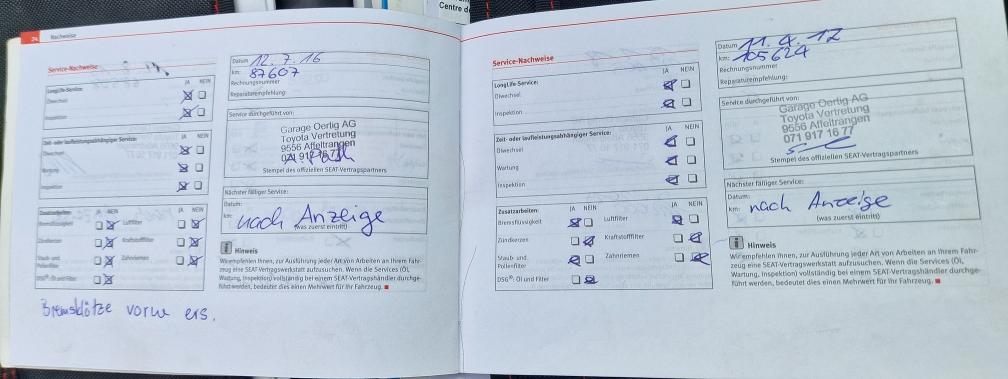 Centre de
24 Nachweise
Service-Nachweise
LongLife-Service: JA NEIN
Ölwechsel
Inspektion
Zeit- oder laufleistungsabhängiger Service:
JA NEIN
Ölwechsel
Wartung
Inspektion
Zusatzarbeiten: JA NEIN JA NEIN
Bremsflüssigkeit Luftfilter
Zündkerzen Kraftstofffilter
Staub- und
Pollenfilter Zahnriemen
DSG®: Öl und Filter
Bremsklötze vorne ers.
Datum 12.7.16
km: 87607
Rechnungsnummer
Reparaturempfehlung:
Service durchgeführt von:
Garage Oertig AG
Toyota Vertretung
9556 Affeltrangen
071 917 16 77
Stempel des offiziellen SEAT-Vertragspartners
Nächster fälliger Service:
Datum:
km: nach Anzeige
(was zuerst eintritt)
Hinweis
Wir empfehlen Ihnen, zur Ausführung jeder Art von Arbeiten an Ihrem Fahr-
zeug eine SEAT-Vertragswerkstatt aufzusuchen. Wenn die Services (Öl,
Wartung, Inspektion) vollständig bei einem SEAT-Vertragshändler durchge-
führt werden, bedeutet dies einen Mehrwert für Ihr Fahrzeug.
Service-Nachweise
LongLife-Service: JA NEIN
Ölwechsel
Inspektion
Zeit- oder laufleistungsabhängiger Service:
JA NEIN
Ölwechsel
Wartung
Inspektion
Zusatzarbeiten: JA NEIN JA NEIN
Bremsflüssigkeit Luftfilter
Zündkerzen Kraftstofffilter
Staub- und
Pollenfilter Zahnriemen
DSG®: Öl und Filter
Datum 11.4.17
km: 105624
Rechnungsnummer
Reparaturempfehlung:
Service durchgeführt von:
Garage Oertig AG
Toyota Vertretung
9556 Affeltrangen
071 917 16 77
Stempel des offiziellen SEAT-Vertragspartners
Nächster fälliger Service:
Datum:
km: nach Anzeige
(was zuerst eintritt)
Hinweis
Wir empfehlen Ihnen, zur Ausführung jeder Art von Arbeiten an Ihrem Fahr-
zeug eine SEAT-Vertragswerkstatt aufzusuchen. Wenn die Services (Öl,
Wartung, Inspektion) vollständig bei einem SEAT-Vertragshändler durchge-
führt werden, bedeutet dies einen Mehrwert für Ihr Fahrzeug.